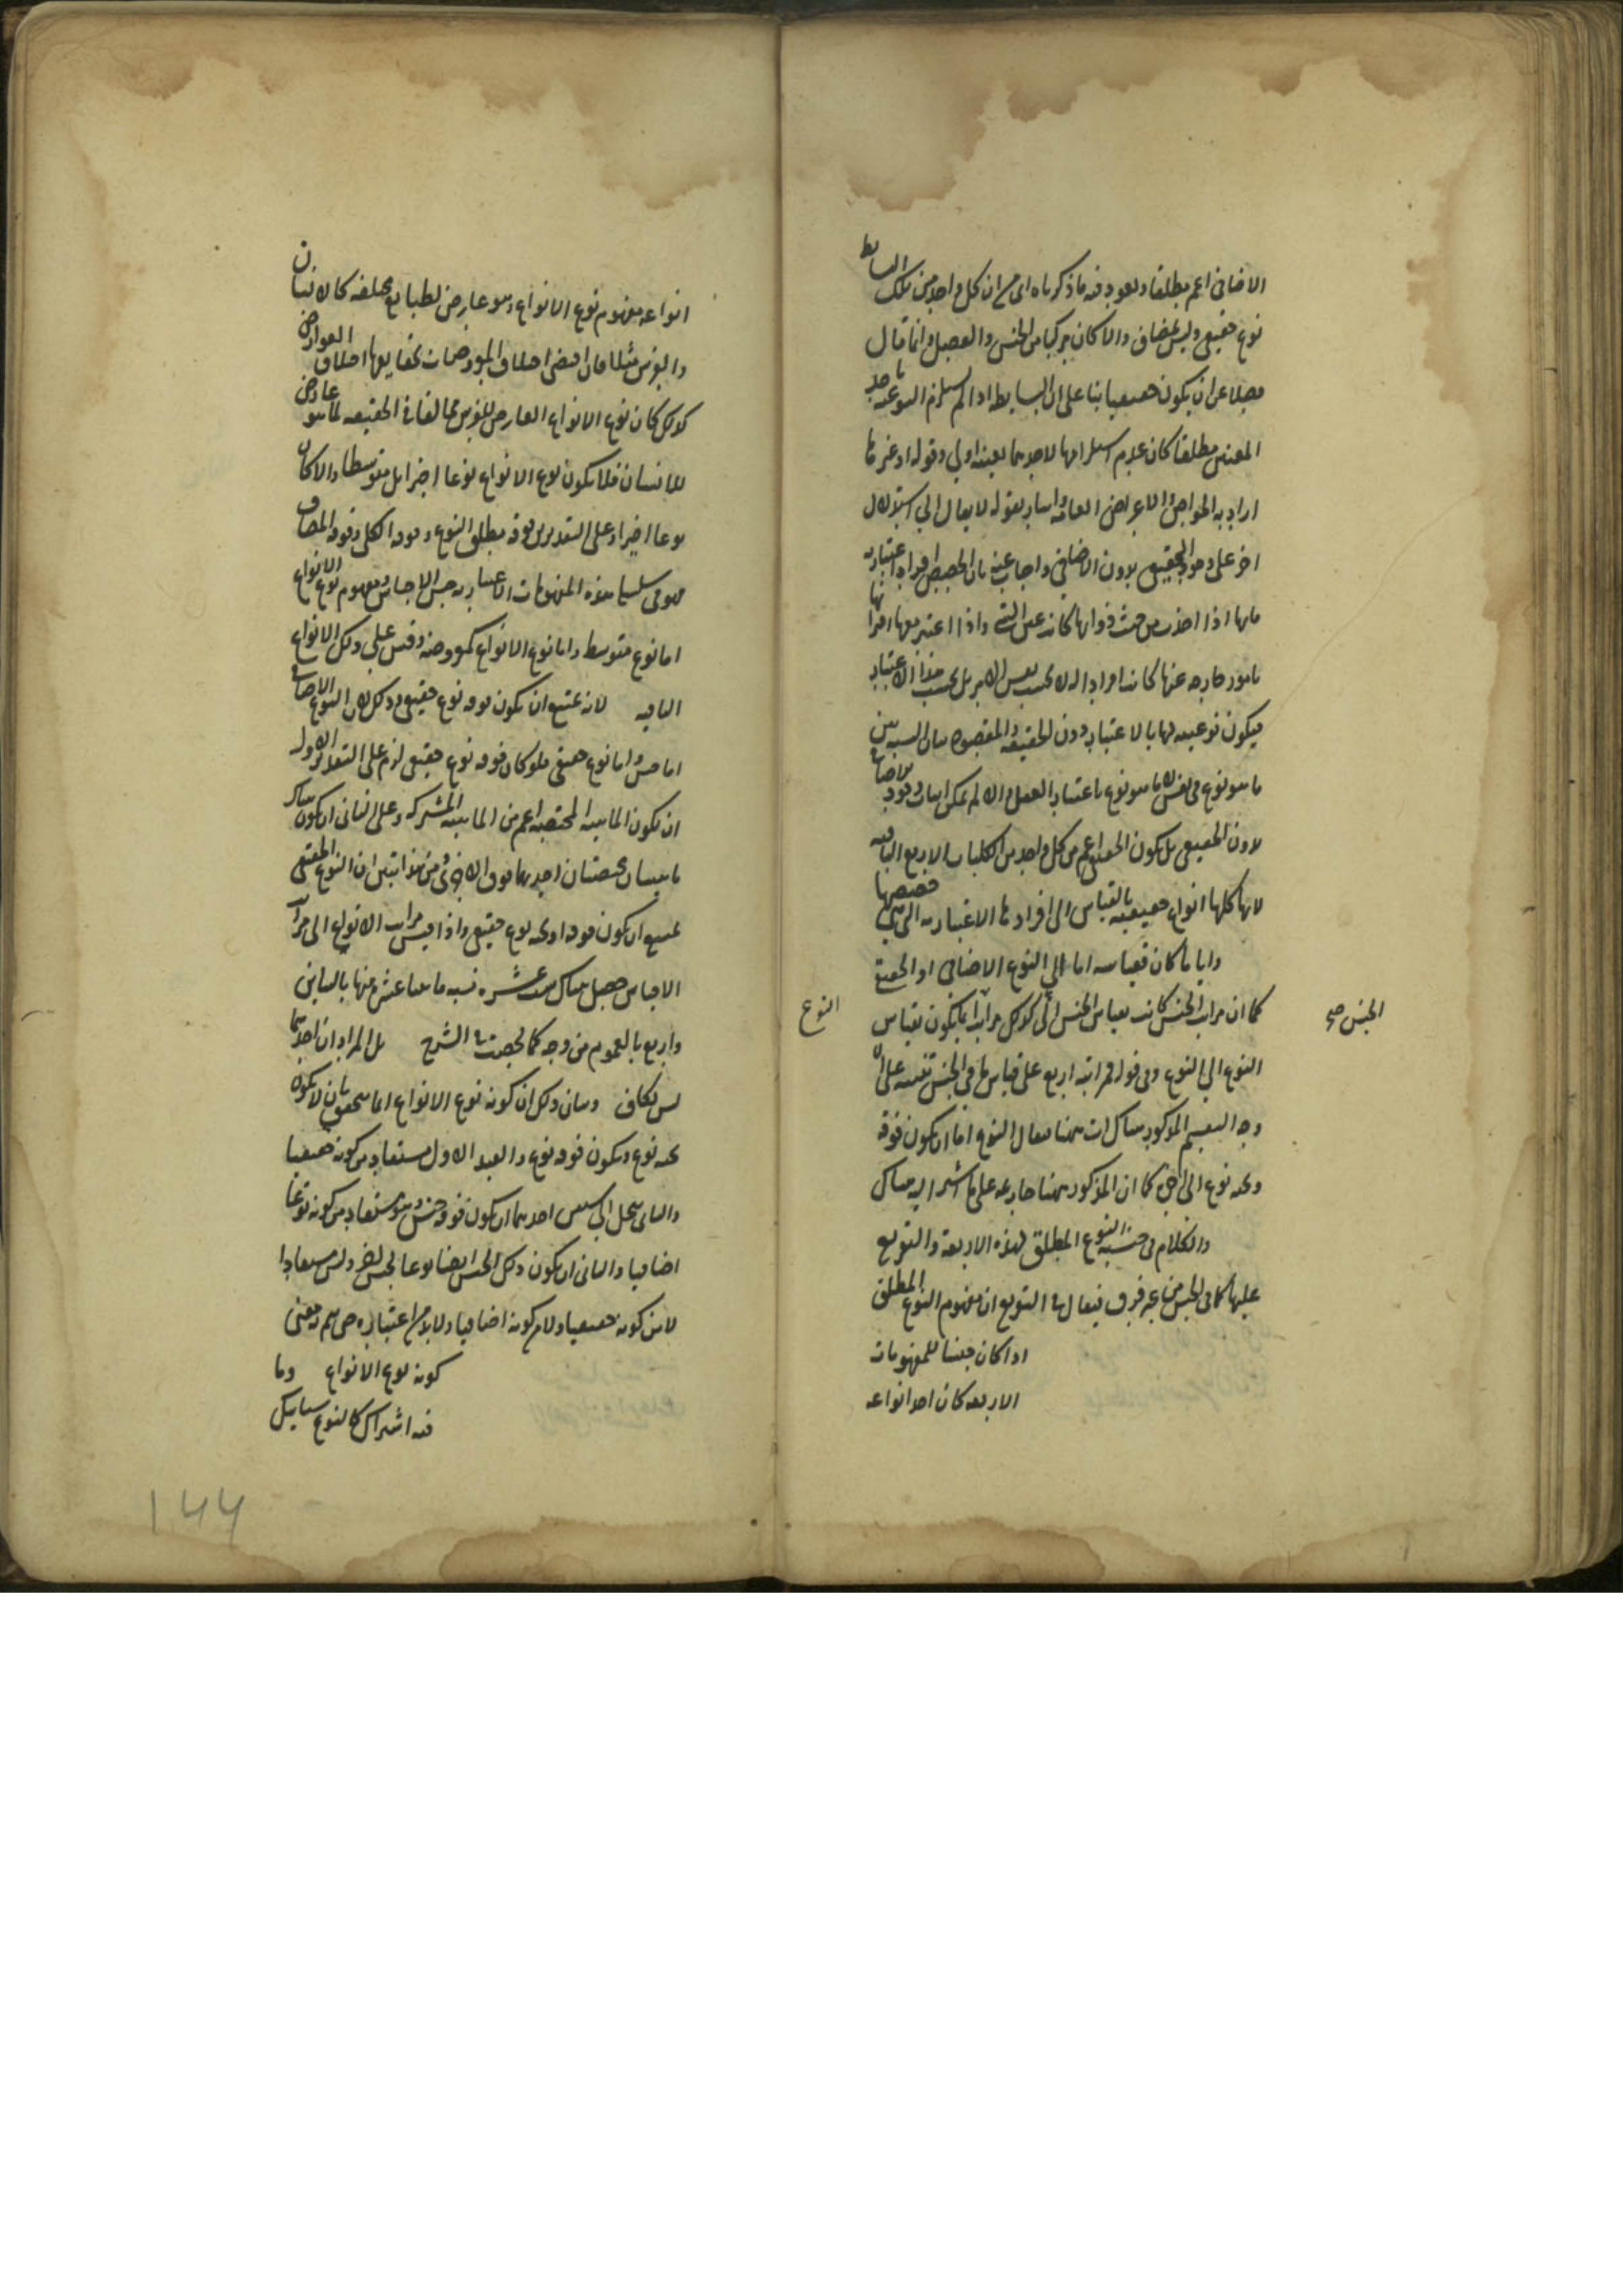 الاضافى اعم مطلقا ويعود فيه ما ذكرناه اى من ان كل واحد من تلك البسايط
نوع حقيقى وليس بمضاف والا كان مركبا من الجنس والفصل وانما قال
فضلا عن ان يكون حقيقيا بناء على ان البسايط اذا لم يستلزم النوعية باحد
المعنيين مطلقا كان عدم استلزامها لاحدهما بعينه اولى وقوله او غيرها
اراد به الخواص والاعراض العامة واشار بقوله لا يقال الى استدلال
اخر على وجود الحقيقى بدون الاضافى واجاب عنه بان الحصص افراد اعتبارية
فانها اذا اخذت من حيث ذواتها كانت عين الشى واذا اعتبر معها اقترانها
بامور خارجة عنها كانت افرادا له لا بحسب نفس الامر بل بحسب هذا الاعتبار
فيكون نوعيته لها بالاعتبار دون الحقيقة والمقصود بيان النسبة بين
ما هو نوع فى نفس الامر لا ما هو نوع باعتبار العقل والا لم يمكن اثبات وجود
بدون الحقيقى بل يكون الحقيقى اعم من كل واحد من الكليات الاربع الباقية
لانها كلها انواع حقيقية بالقياس الى افرادها الاعتبارية التى هى حصصها
وايا ما كان فقياسه اما الى النوع الاضافى او الحقيقى
كما ان مراتب الجنس كانت بقياس الجنس الى كذلك مراتب انما يكون بقياس
الجنس صح
النوع
النوع الى النوع وفى قوله فمراتبه اربع على قياس ما فى الجنس تنبيه على ان
وجه التقسيم المذكور هناك ات ههنا فيقال النوع اما ان يكون فوقه
وتحته نوع الى اخره كما ان المذكور ههنا جار ثمه على ما اشير اليه هناك
والكلام فى جنسية النوع المطلق لهذه الاربعة والتنويع
عليها كما فى الجنس من غير فرق فيقال فى التنويع ان مفهوم النوع المطلق
اذا كان جنسا للمفهومات
الاربعة كان احد انواعه
انواعه مفهوم نوع الانواع وهو عارض لطبايع مختلفة كالانسان
والفرس مثلا فان اقتضى اختلاف المعروضات بحقايقها اختلاف العوارض
كذلك كان نوع الانواع العارض للفرس مخالفا فى الحقيقة لما هو عارض
للانسان فلا يكون نوع الانواع نوعا اخيرا بل متوسطا والا كان
نوعا اخيرا وعلى التقديرين فوقه مطلق النوع وفوقه الكلى وفوقه المضاف
فهو فى سلسلة هذه المفهومات الاعتبارية جنس الاجناس ومفهوم نوع الانواع
اما نوع متوسط واما نوع الانواع كمعروضه وقس على ذلك الانواع
الباقية لانه يمتنع ان يكون فوقه نوع حقيقى وذلك لان النوع الاضافى
اما جنس واما نوع حقيقى فلو كان فوقه نوع حقيقى لزم على التقدير الاول
ان يكون الماهية المختصة اعم من الماهية المشتركة وعلى الثانى ان يكون هناك
ماهيتان مختصتان احديهما فوق الاخرى ومن هذا تبين ان النوع الحقيقى
يمتنع ان يكون فوقه او تحته نوع حقيقى واذا قيس مراتب الانواع الى مراتب
الاجناس حصل هناك ست عشرة نسبة ما اثنا عشر منها بالتباين
واربع بالعموم من وجه كما لخصت فى الشرح بل المراد ان احدهما
ليس بكاف وبيان ذلك ان كونه نوع الانواع انما يتحقق بان لا يكون
تحته نوع ويكون فوقه نوع والقيد الاول مستفاد من كونه حقيقيا
والثانى ينحل الى شيئين احدهما ان يكون فوقه جنس وهو مستفاد من كونه نوعا
اضافيا والثانى ان يكون ذلك الجنس ايضا نوعا لجنس اخر وليس مستفادا
لا من كونه حقيقيا ولا من كونه اضافيا ولا بد من اعتباره حتى يتم معنى
كونه نوع الانواع وما
فيه اشتراك كالنوع
١٤٤